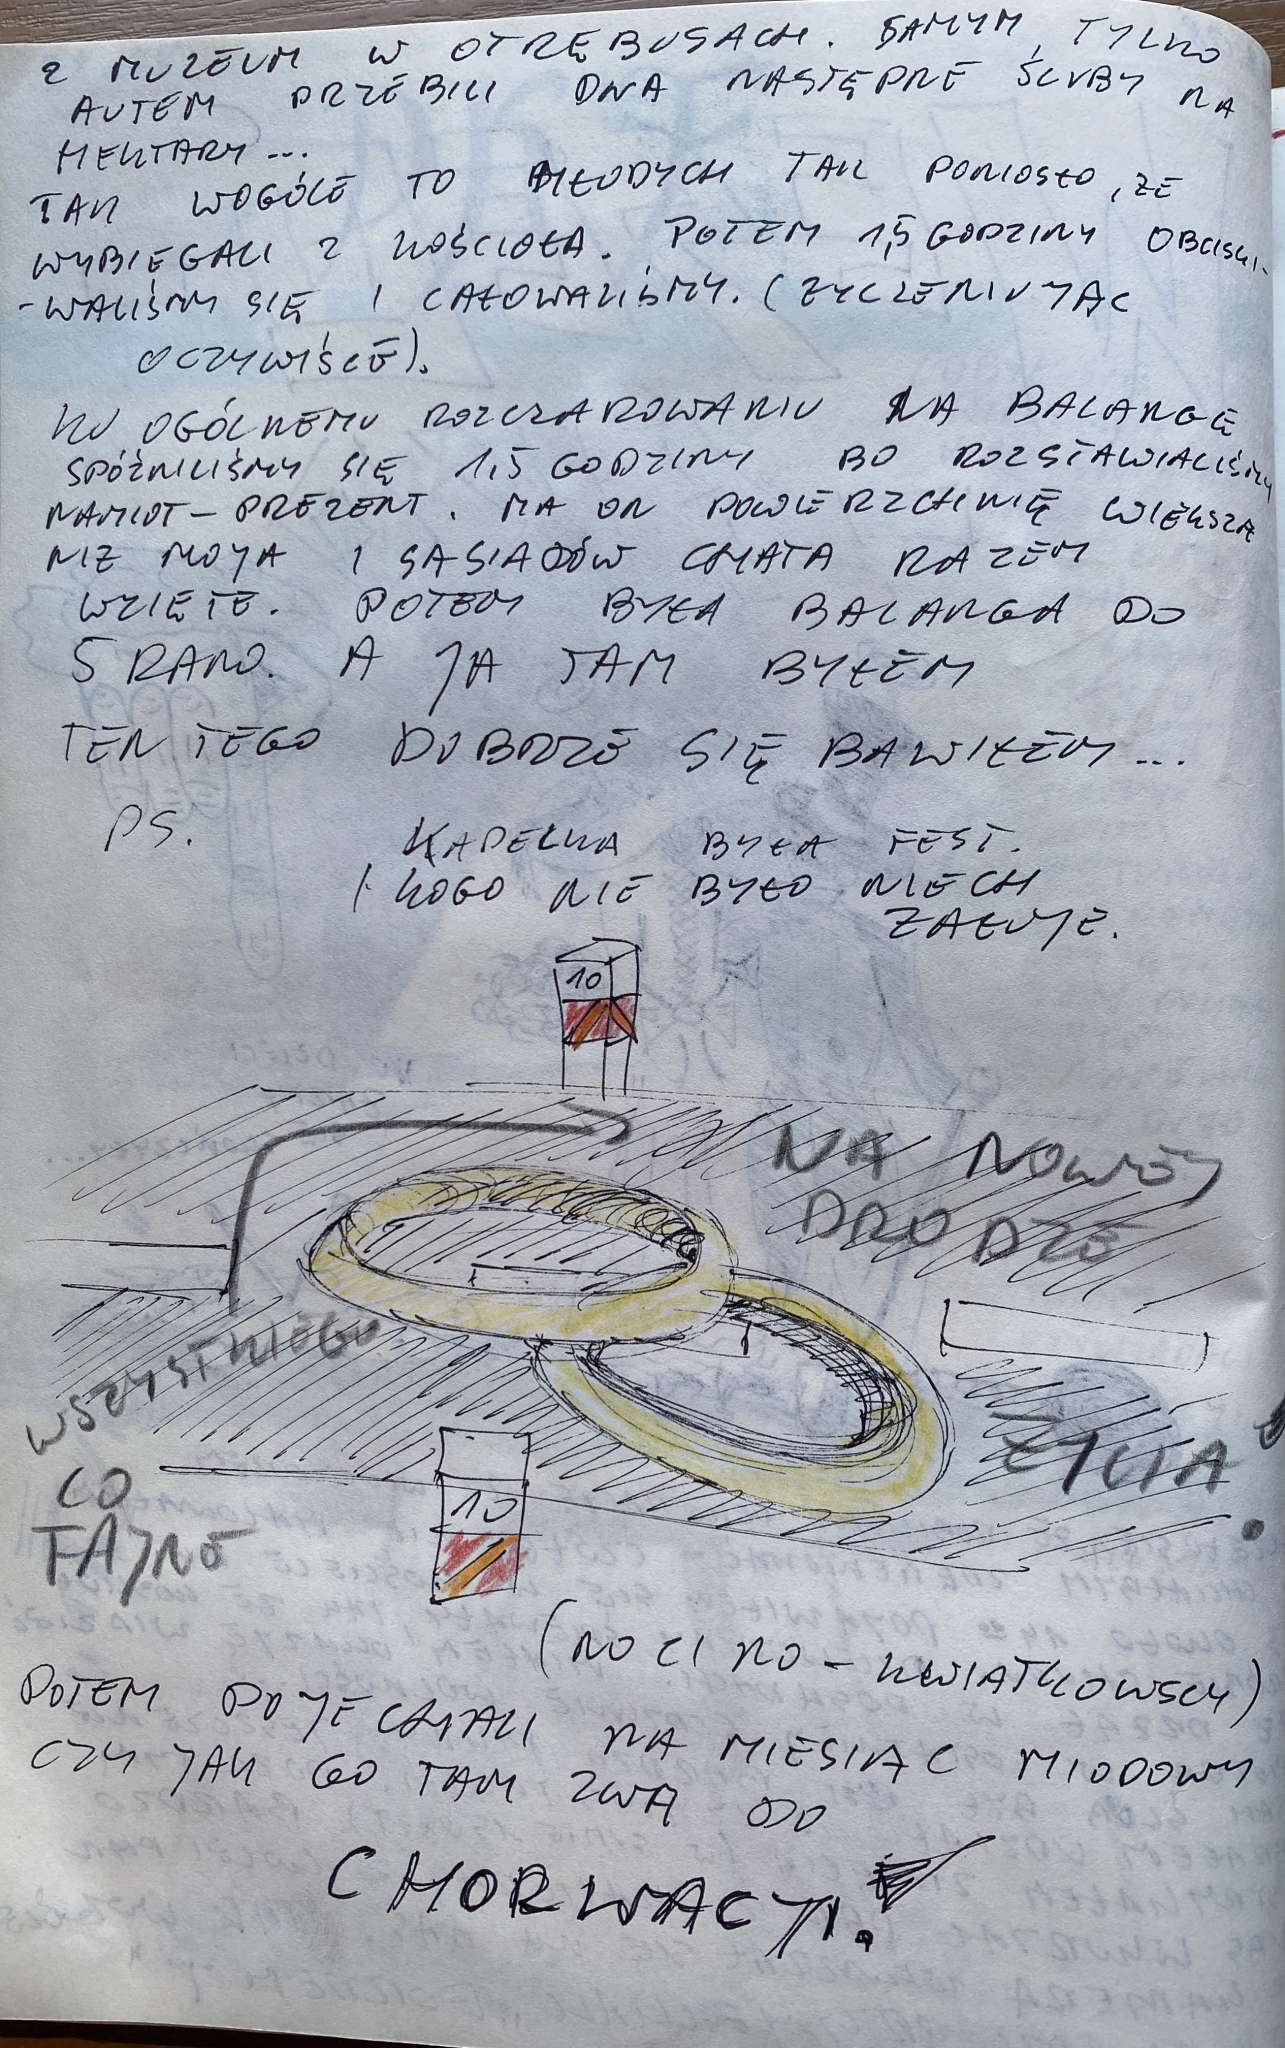 Z MUZEUM W OTRĘBUSACH. SAMYM, TYLKO
AUTEM PRZEBILI DWA NASTĘPNE ŚLUBY NA
METARY...
TAK WOGÓLE TO MŁODYCH TAK PONIOSŁO, ŻE
WYBIEGALI Z KOŚCIOŁA. POTEM 1,5 GODZINY OBCISKI-
-WALIŚMY SIĘ I CAŁOWALIŚMY. (ŻYCZENIUJĄC
OCZYWIŚCIE).
KU OGÓLNEMU ROZCZAROWANIU NA BALANGĘ
SPÓŹNILIŚMY SIĘ 1,5 GODZINY BO ROZSTAWIALIŚMY
NAMIOT-PREZENT. MA ON POWIERZCHNIĘ WIĘKSZĄ
NIŻ MOJA I SĄSIADÓW CHATA RAZEM
WZIĘTE. POTEM BYŁA BALANGA DO
5 RANO. A JA TAM BYŁEM
TEN TEGO DOBRZE SIĘ BAWIŁEM...
PS. KAPELKA BYŁA FEST.
I KOGO NIE BYŁO NIECH
ŻAŁUJE.
10
NA NOWEJ
DRODZE
WSZYSTKIEGO
ŻYCIA!
CO
FAJNE
10
(NO CI NO - KWIATKOWSCY)
POTEM POJECHALI NA MIESIĄC MIODOWY
CZY JAK GO TAM ZWĄ DO
CHORWACJI!